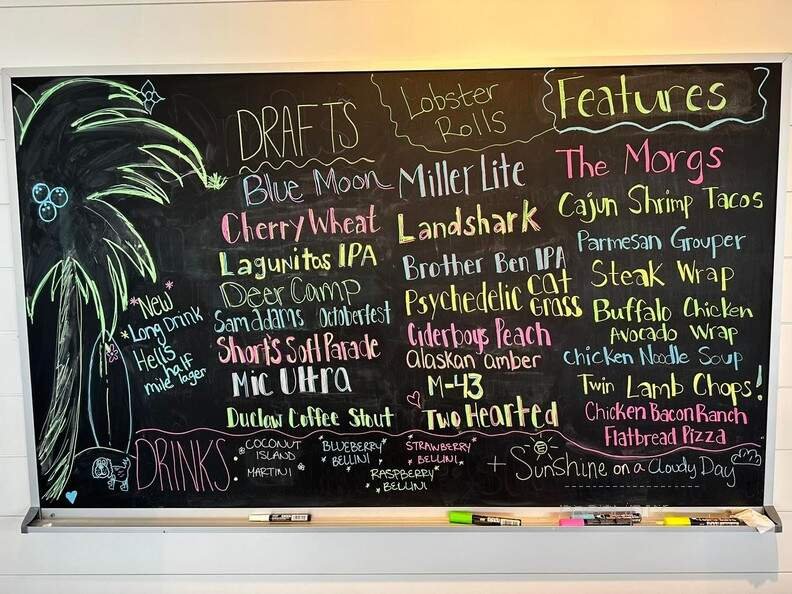 DRAFTS
Blue Moon
Cherry Wheat
Lagunitas IPA
Deer Camp
Sam adams Octoberfest
Short's Soft Parade
Mic Ultra
Duclaw Coffee Stout
*New*
*Long Drink
Hell's
half
mile lager
Lobster
Rolls
Miller Lite
Landshark
Brother Ben IPA
Psychedelic cat
Grass
Ciderboys Peach
alaskan amber
M-43
Two Hearted
Features
The Morgs
Cajun Shrimp Tacos
Parmesan Grouper
Steak Wrap
Buffalo Chicken
Avocado Wrap
Chicken Noodle Soup
Twin Lamb Chops!
Chicken Bacon Ranch
Flatbread Pizza
DRINKS
COCONUT
ISLAND
MARTINI
BLUEBERRY
BELLINI
STRAWBERRY
BELLINI
RASPBERRY
BELLINI
+ Sunshine on a Cloudy Day